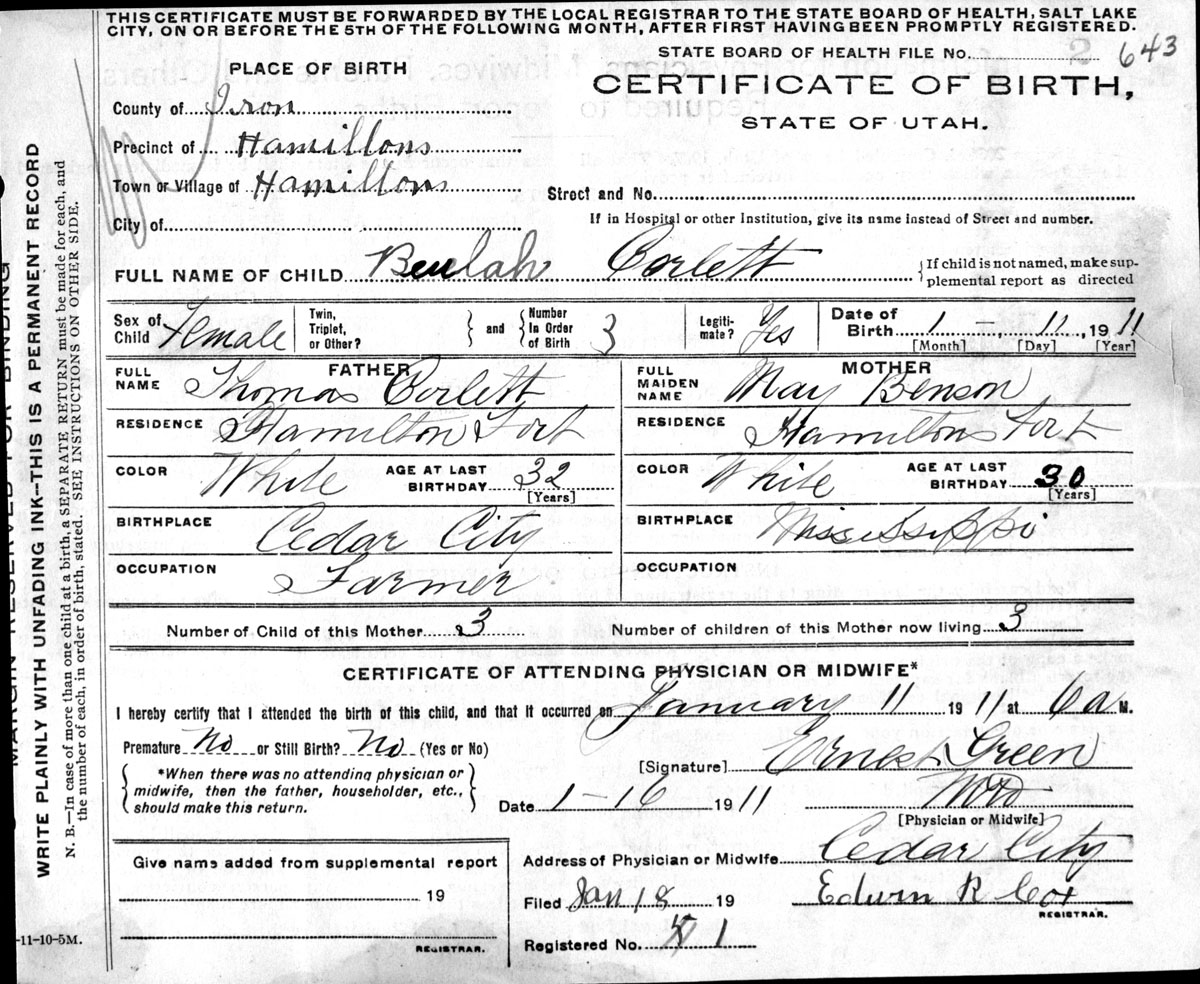 THIS CERTIFICATE MUST BE FORWARDED BY THE LOCAL REGISTRAR TO THE STATE BOARD OF HEALTH, SALT LAKE
CITY, ON OR BEFORE THE 5TH OF THE FOLLOWING MONTH, AFTER FIRST HAVING BEEN PROMPTLY REGISTERED.
STATE BOARD OF HEALTH FILE No. 643
PLACE OF BIRTH
CERTIFICATE OF BIRTH,
STATE OF UTAH.
County of Iron
Precinct of Hamiltons
Town or Village of Hamiltons
Street and No.
City of
If in Hospital or other Institution, give its name instead of Street and number.
FULL NAME OF CHILD Beulah Corlett
{If child is not named, make sup-
plemental report as directed
Sex of Child Female
Twin, Triplet, or Other? } and { Number In Order of Birth 3
Legiti-mate? Yes
Date of Birth 1 - 11, 1911
[Month] [Day] [Year]
FATHER
FULL NAME Thomas Corlett
RESIDENCE Hamilton Fort
COLOR White AGE AT LAST BIRTHDAY 32 [Years]
BIRTHPLACE Cedar City
OCCUPATION Farmer
MOTHER
FULL MAIDEN NAME May Benson
RESIDENCE Hamiltons Fort
COLOR White AGE AT LAST BIRTHDAY 30 [Years]
BIRTHPLACE Mississippi
OCCUPATION
Number of Child of this Mother 3 Number of children of this Mother now living 3
CERTIFICATE OF ATTENDING PHYSICIAN OR MIDWIFE*
I hereby certify that I attended the birth of this child, and that it occurred on January 11 1911 at 6 a M.
Premature No or Still Birth? No (Yes or No)
[Signature] Ernest Green
{*When there was no attending physician or
midwife, then the father, householder, etc.,
should make this return.}
Date 1-16 1911 MD
[Physician or Midwife]
Give name added from supplemental report
19
REGISTRAR.
Address of Physician or Midwife Cedar City
Filed Jan 18 19 Edwin R Cox
REGISTRAR.
Registered No. 1
-11-10-5M.
MARGIN RESERVED FOR BINDING
WRITE PLAINLY WITH UNFADING INK—THIS IS A PERMANENT RECORD
N. B.—In case of more than one child at a birth, a SEPARATE RETURN must be made for each, and
the number of each, in order of birth, stated. SEE INSTRUCTIONS ON OTHER SIDE.